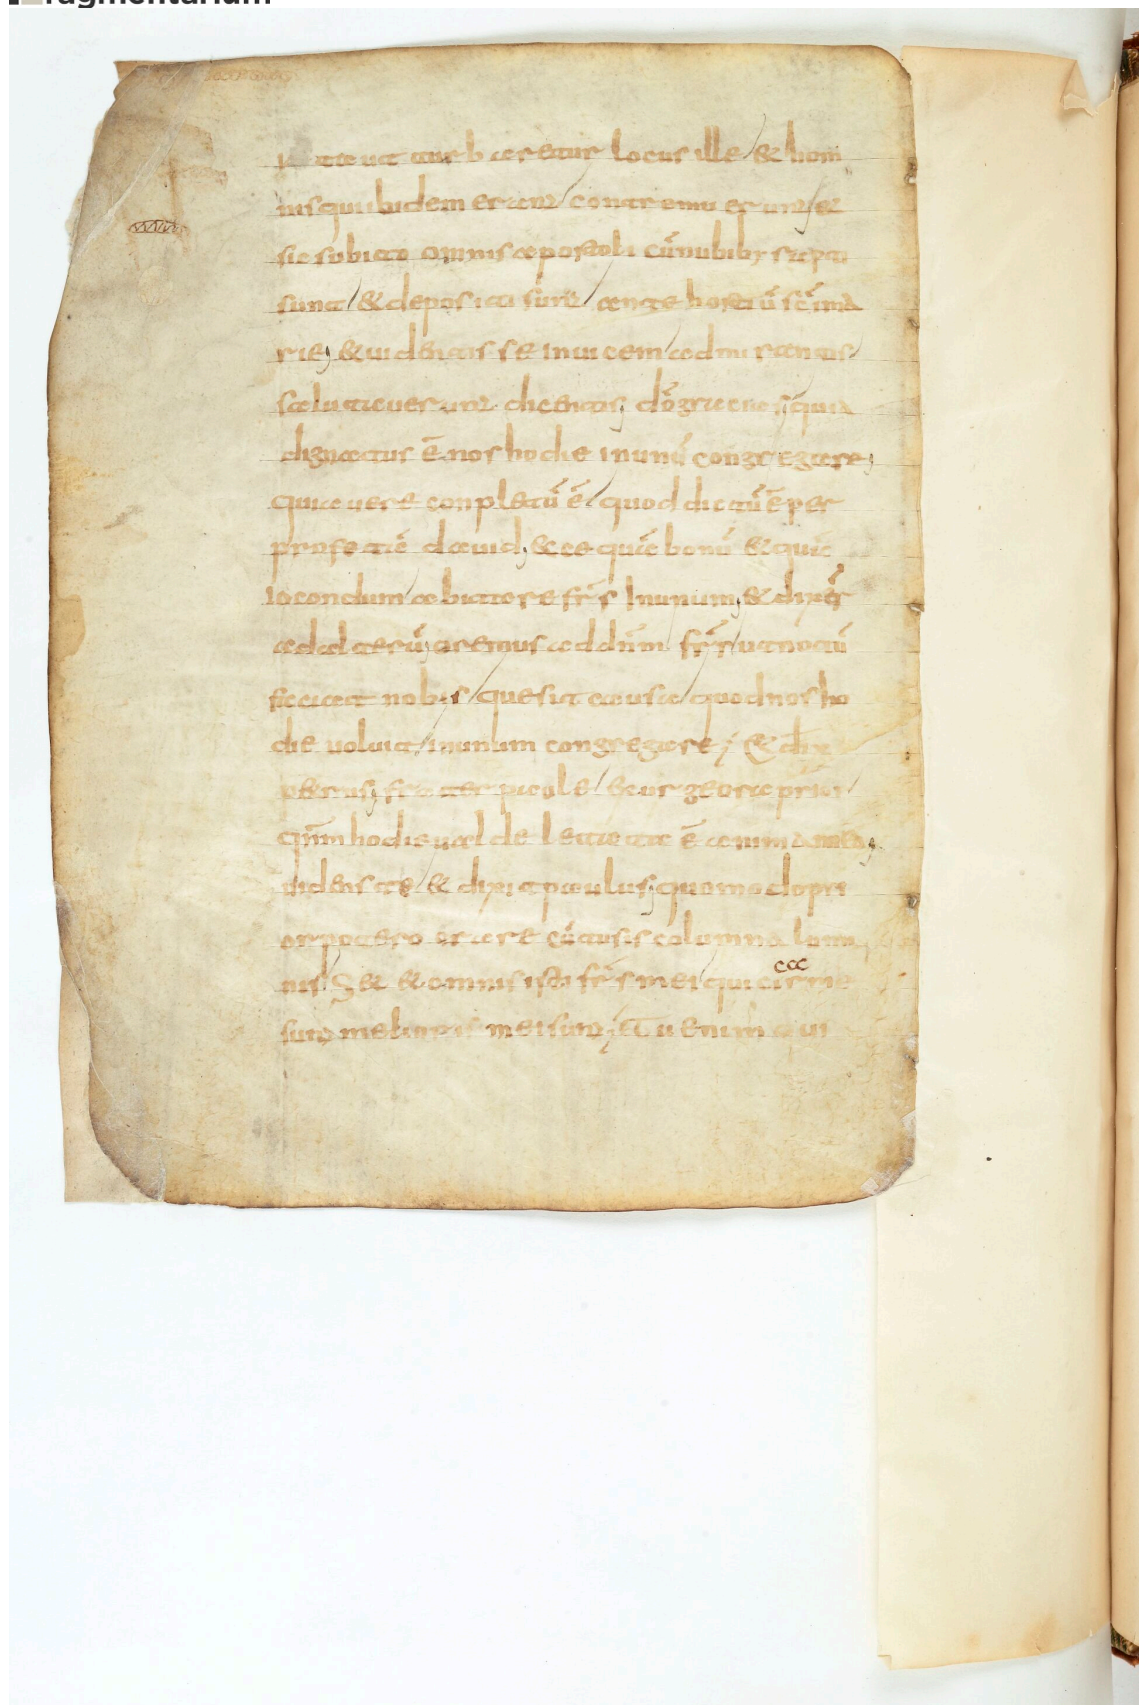 ragmentarium
ita ut turbaretur locus ille & homi
nis qui ibidem erant contremuerunt &
sic subito omnis apostoli cū nubibꝫ rapti
sunt & depositi sunt ante hostiū scē ma
rie; & uidentis se inuicem admirantis
salutauerunt dicentis; dō gracias quia
dignatus ē nos hodie inunū congregare;
quia uere conpletū ē quod dictū ē per
profetā dauid; ecce quā bonū & quā
iocondum abitare frs̄ inunum; & dixer̄
ad alterū; oremus ad dn̄m frs̄ ut notū
faciat nobis que sit causa quod nos ho
die uoluit inunum congregare; & dix
petrus; frater paule
qm̄ hodie ualde letata ē anima mea;
uidens te & dixit paulus; quomodo pri
or potero orare cū tu sis columna lumi
nis & & omnis isti frs̄ mei qui cir me
ccc
sunt melioris mei sunt; Tu enim qui